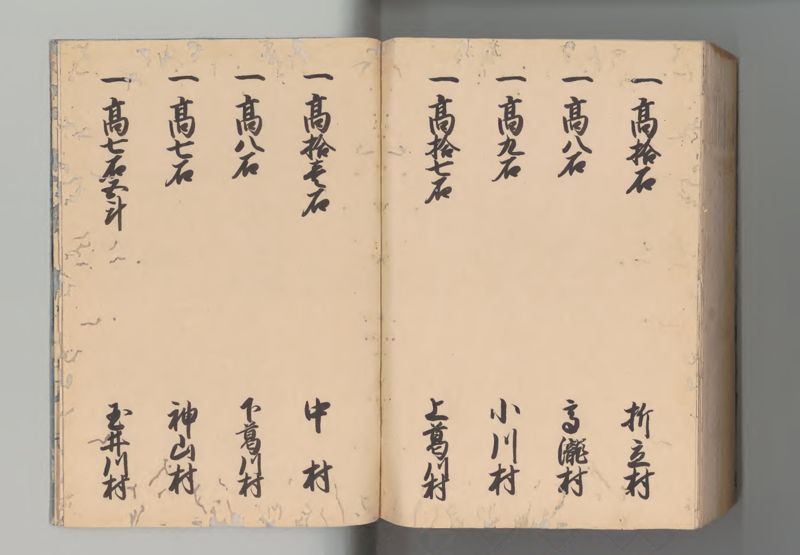 一高拾石 折立村
一高八石 高瀧村
一高九石 小川村
一高拾七石 上葛川村
一高拾壱石 中村
一高八石 下葛川村
一高七石 神山村
一高七石五斗 玉井川村